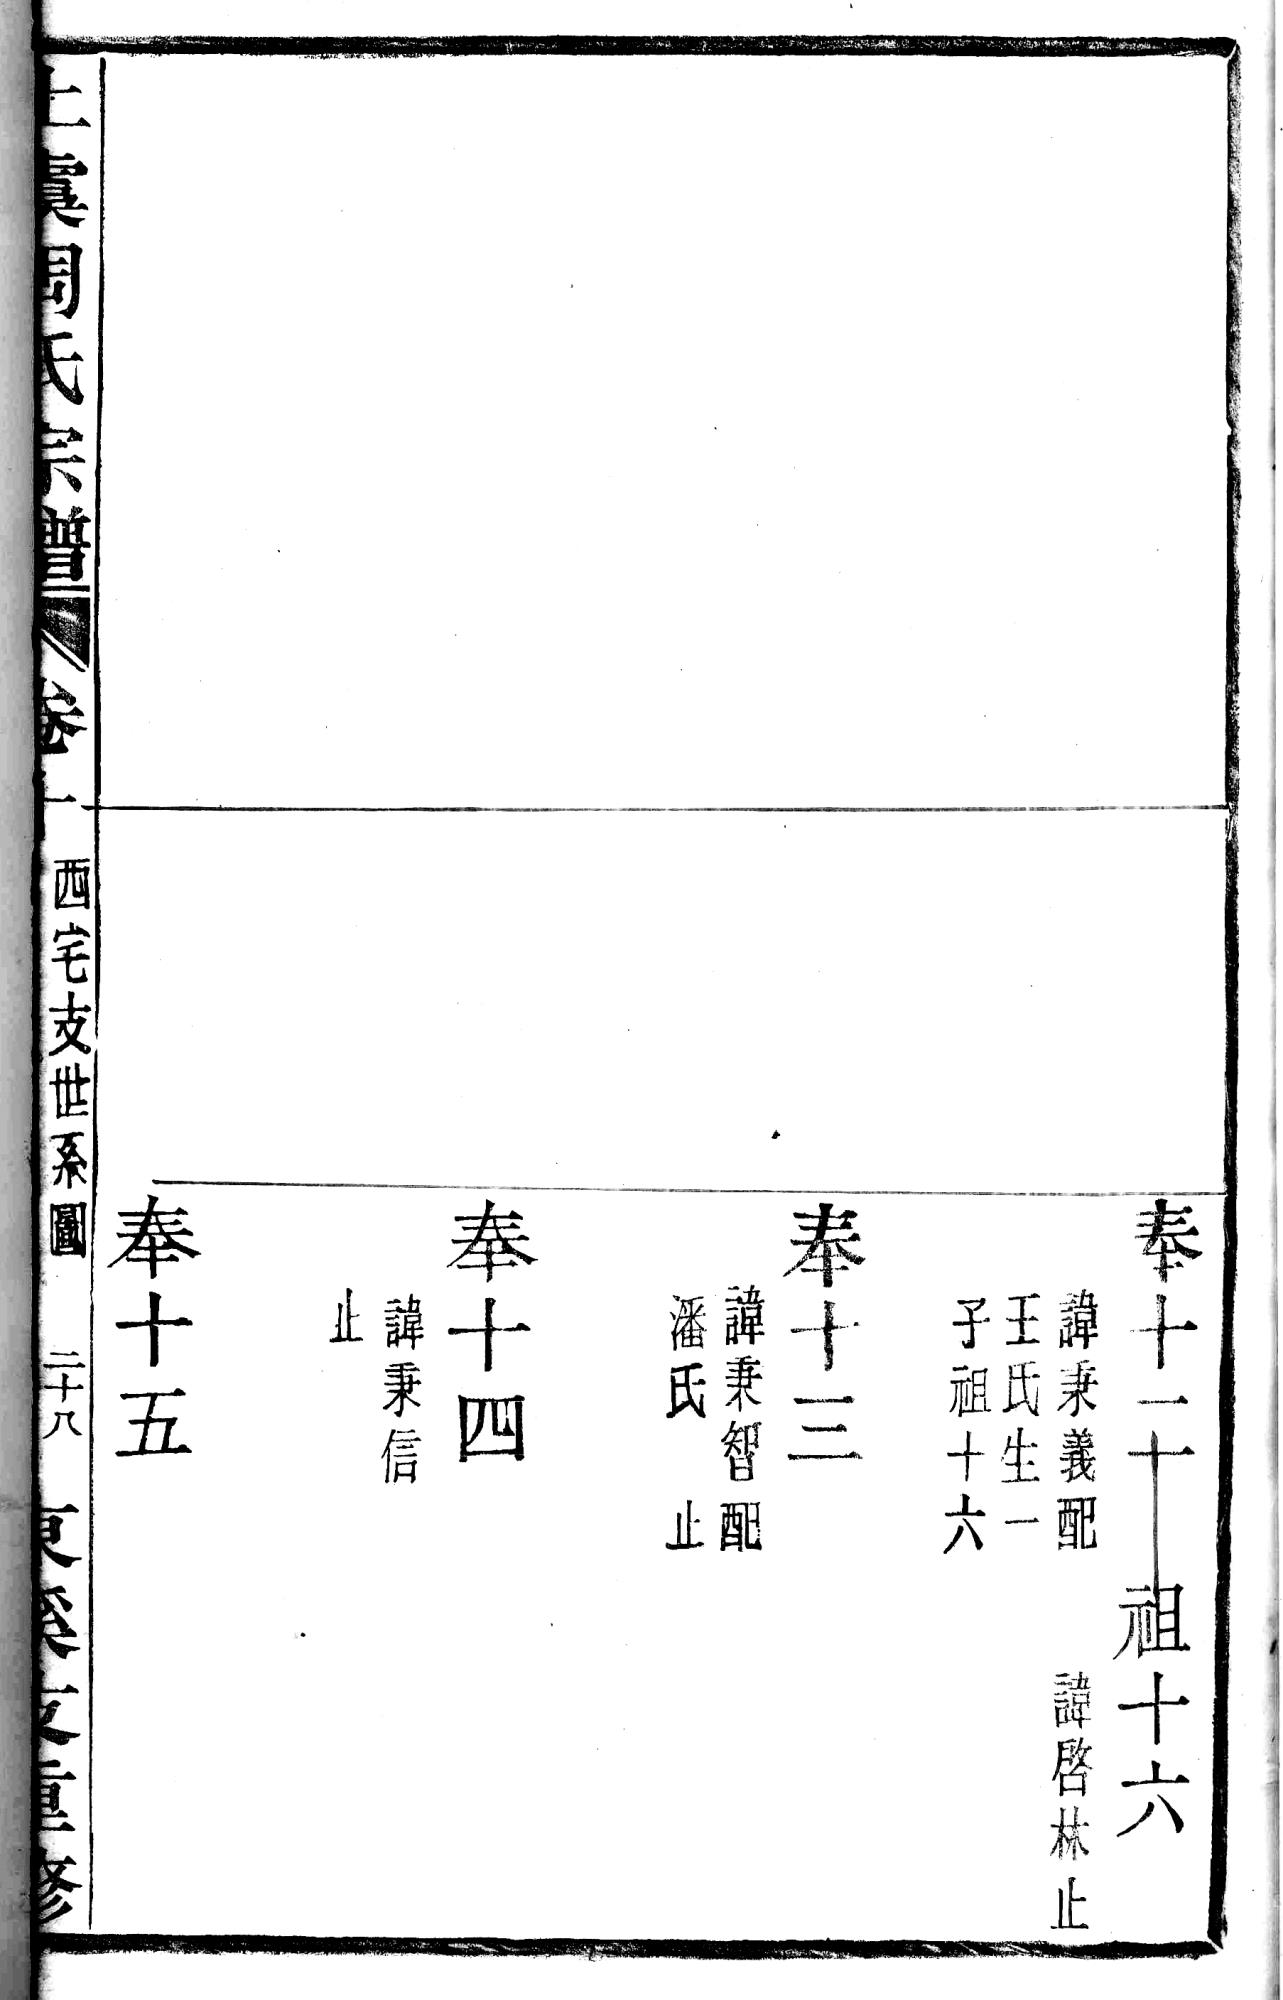 奉十二
諱秉義配
王氏生一
子祖十六
祖十六
諱啓林止
奉十三
諱秉智配
潘氏　止
奉十四
諱秉信
止
奉十五
上虞周氏宗譜 卷
西宅支世系圖
二十八
支重修